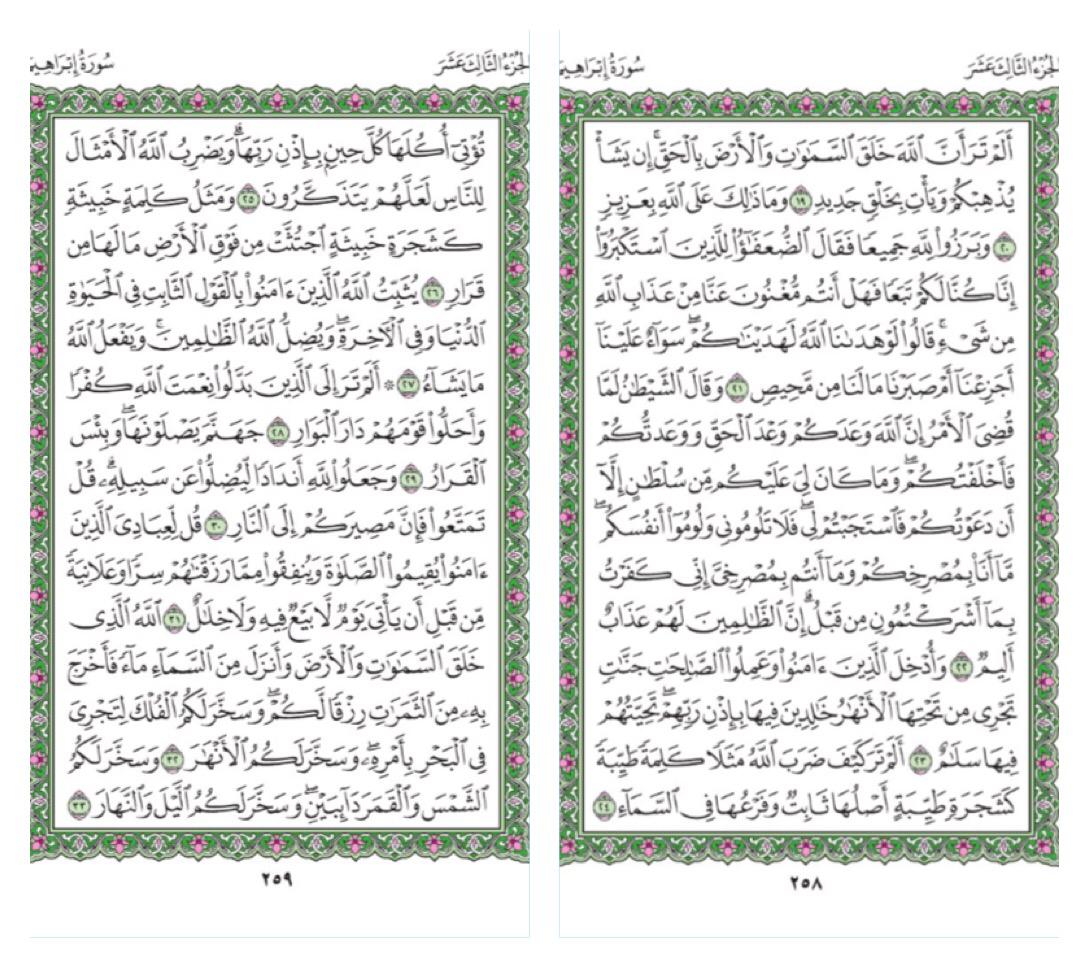 الجزء الثالث عشر
سورة إبراهيم
أَلَمْ تَرَ أَنَّ ٱللَّهَ خَلَقَ ٱلسَّمَٰوَٰتِ وَٱلْأَرْضَ بِٱلْحَقِّ ۚ إِن يَشَأْ
يُذْهِبْكُمْ وَيَأْتِ بِخَلْقٍ جَدِيدٍ ١٩ وَمَا ذَٰلِكَ عَلَى ٱللَّهِ بِعَزِيزٍ
٢٠ وَبَرَزُوا۟ لِلَّهِ جَمِيعًا فَقَالَ ٱلضُّعَفَٰٓؤُا۟ لِلَّذِينَ ٱسْتَكْبَرُوٓا۟
إِنَّا كُنَّا لَكُمْ تَبَعًا فَهَلْ أَنتُم مُّغْنُونَ عَنَّا مِنْ عَذَابِ ٱللَّهِ
مِن شَىْءٍ ۚ قَالُوا۟ لَوْ هَدَىٰنَا ٱللَّهُ لَهَدَيْنَٰكُمْ ۖ سَوَآءٌ عَلَيْنَآ
أَجَزِعْنَآ أَمْ صَبَرْنَا مَا لَنَا مِن مَّحِيصٍ ٢١ وَقَالَ ٱلشَّيْطَٰنُ لَمَّا
قُضِىَ ٱلْأَمْرُ إِنَّ ٱللَّهَ وَعَدَكُمْ وَعْدَ ٱلْحَقِّ وَوَعَدتُّكُمْ
فَأَخْلَفْتُكُمْ ۖ وَمَا كَانَ لِىَ عَلَيْكُم مِّن سُلْطَٰنٍ إِلَّآ
أَن دَعَوْتُكُمْ فَٱسْتَجَبْتُمْ لِى ۖ فَلَا تَلُومُونِى وَلُومُوٓا۟ أَنفُسَكُم ۖ
مَّآ أَنَا۠ بِمُصْرِخِكُمْ وَمَآ أَنتُم بِمُصْرِخِىَّ ۖ إِنِّى كَفَرْتُ
بِمَآ أَشْرَكْتُمُونِ مِن قَبْلُ ۗ إِنَّ ٱلظَّٰلِمِينَ لَهُمْ عَذَابٌ
أَلِيمٌ ٢٢ وَأُدْخِلَ ٱلَّذِينَ ءَامَنُوا۟ وَعَمِلُوا۟ ٱلصَّٰلِحَٰتِ جَنَّٰتٍ
تَجْرِى مِن تَحْتِهَا ٱلْأَنْهَٰرُ خَٰلِدِينَ فِيهَا بِإِذْنِ رَبِّهِمْ ۖ تَحِيَّتُهُمْ
فِيهَا سَلَٰمٌ ٢٣ أَلَمْ تَرَ كَيْفَ ضَرَبَ ٱللَّهُ مَثَلًا كَلِمَةً طَيِّبَةً
كَشَجَرَةٍ طَيِّبَةٍ أَصْلُهَا ثَابِتٌ وَفَرْعُهَا فِى ٱلسَّمَآءِ ٢٤
٢٥٨
الجزء الثالث عشر
سورة إبراهيم
تُؤْتِىٓ أُكُلَهَا كُلَّ حِينٍۭ بِإِذْنِ رَبِّهَا ۗ وَيَضْرِبُ ٱللَّهُ ٱلْأَمْثَالَ
لِلنَّاسِ لَعَلَّهُمْ يَتَذَكَّرُونَ ٢٥ وَمَثَلُ كَلِمَةٍ خَبِيثَةٍ
كَشَجَرَةٍ خَبِيثَةٍ ٱجْتُثَّتْ مِن فَوْقِ ٱلْأَرْضِ مَا لَهَا مِن
قَرَارٍ ٢٦ يُثَبِّتُ ٱللَّهُ ٱلَّذِينَ ءَامَنُوا۟ بِٱلْقَوْلِ ٱلثَّابِتِ فِى ٱلْحَيَوٰةِ
ٱلدُّنْيَا وَفِى ٱلْءَاخِرَةِ ۖ وَيُضِلُّ ٱللَّهُ ٱلظَّٰلِمِينَ ۚ وَيَفْعَلُ ٱللَّهُ
مَا يَشَآءُ ٢٧ ۞ أَلَمْ تَرَ إِلَى ٱلَّذِينَ بَدَّلُوا۟ نِعْمَتَ ٱللَّهِ كُفْرًا
وَأَحَلُّوا۟ قَوْمَهُمْ دَارَ ٱلْبَوَارِ ٢٨ جَهَنَّمَ يَصْلَوْنَهَا ۖ وَبِئْسَ
ٱلْقَرَارُ ٢٩ وَجَعَلُوا۟ لِلَّهِ أَندَادًا لِّيُضِلُّوا۟ عَن سَبِيلِهِۦ ۗ قُلْ
تَمَتَّعُوا۟ فَإِنَّ مَصِيرَكُمْ إِلَى ٱلنَّارِ ٣٠ قُل لِّعِبَادِىَ ٱلَّذِينَ
ءَامَنُوا۟ يُقِيمُوا۟ ٱلصَّلَوٰةَ وَيُنفِقُوا۟ مِمَّا رَزَقْنَٰهُمْ سِرًّا وَعَلَانِيَةً
مِّن قَبْلِ أَن يَأْتِىَ يَوْمٌ لَّا بَيْعٌ فِيهِ وَلَا خِلَٰلٌ ٣١ ٱللَّهُ ٱلَّذِى
خَلَقَ ٱلسَّمَٰوَٰتِ وَٱلْأَرْضَ وَأَنزَلَ مِنَ ٱلسَّمَآءِ مَآءً فَأَخْرَجَ
بِهِۦ مِنَ ٱلثَّمَرَٰتِ رِزْقًا لَّكُمْ ۖ وَسَخَّرَ لَكُمُ ٱلْفُلْكَ لِتَجْرِىَ
فِى ٱلْبَحْرِ بِأَمْرِهِۦ ۖ وَسَخَّرَ لَكُمُ ٱلْأَنْهَٰرَ ٣٢ وَسَخَّرَ لَكُمُ
ٱلشَّمْسَ وَٱلْقَمَرَ دَآئِبَيْنِ ۖ وَسَخَّرَ لَكُمُ ٱلَّيْلَ وَٱلنَّهَارَ ٣٣
٢٥٩